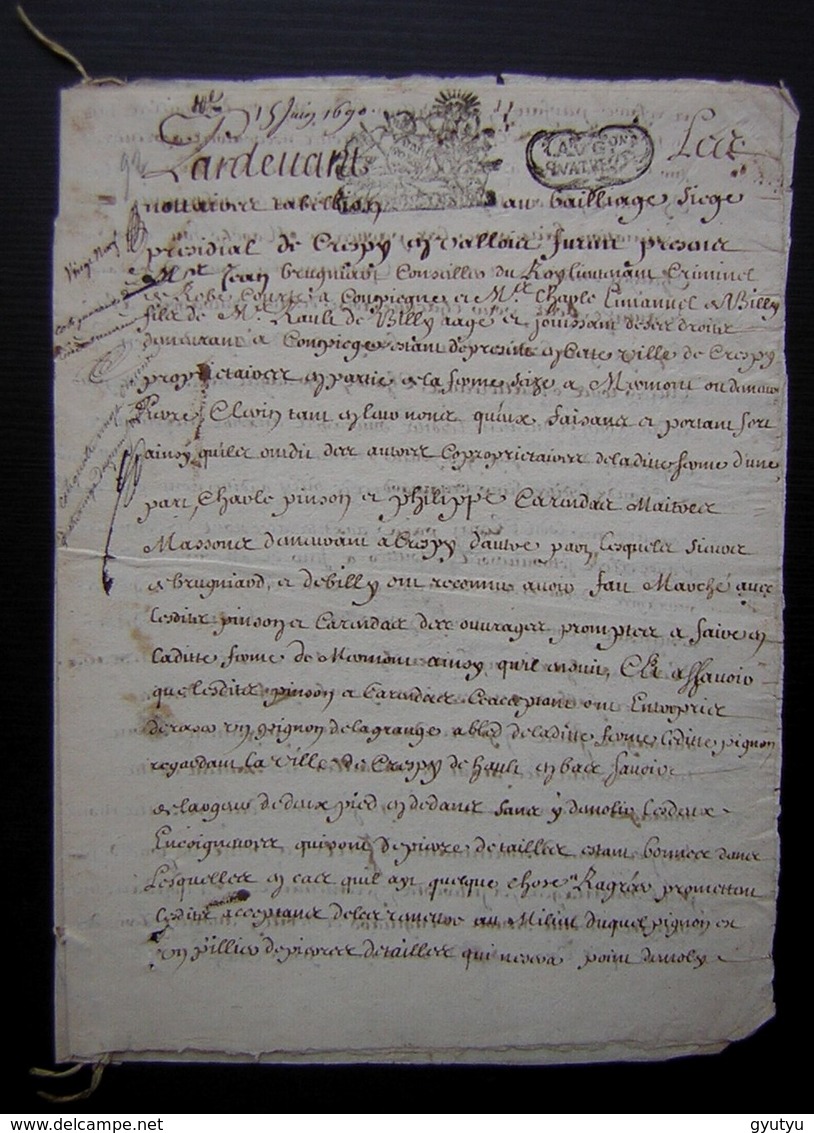 15 Juin 1690
Pardevant Les
nottaires tabellion au bailliage siege
presidial de Crespy en Vallois furent presens
Mre Jean brugniart Conseiller du Roy lieutenant Criminel
de Robe Courte a Compiegne et Mre Charle Emanuel de Billy
fils de Mre Raule de Billy aagé et jouissant de ses droits
demeurant a Compiegne estant de present en cete ville de Crespy
proprietaires en partie de la ferme size a Mermont ou demeure
Pierre Clerin tant en leur noms qu'eux faisans et portant fort
ainsy quils ont dit des autres coproprietaires de laditte ferme d'une
part, Charle pinson et Philippe Carendas Maitres
Massons demeurant a Crespy d'autre part, lesquels sieurs
de brugniard, et de billy ont reconnus avoir fait Marché avec
lesdits pinson et Carendas des ouvrages prompts a faire en
laditte ferme de Mermont ainsy qu'il ensuit, C'Est assavoir
que lesdits pinson et Carendas ce acceptant ont Entrepris
de razer un peignon de la grange a bled de laditte ferme ledit pignon
regardant la Ville de Crespy de hault en bas savoir
de largeur de deux pied en dedans sans y demolir les deux
Encoignures qui sont de pierre de tailles estant bonnes dans
Lesquelles en cas quil ayt quelque chose Ragréer promettent
lesdits acceptans de les remettre au Milieu duquel pignon est
un pillier de pierres de tailles qui ne sera point demoly
LAUG ON
QUATRE
gyutyu